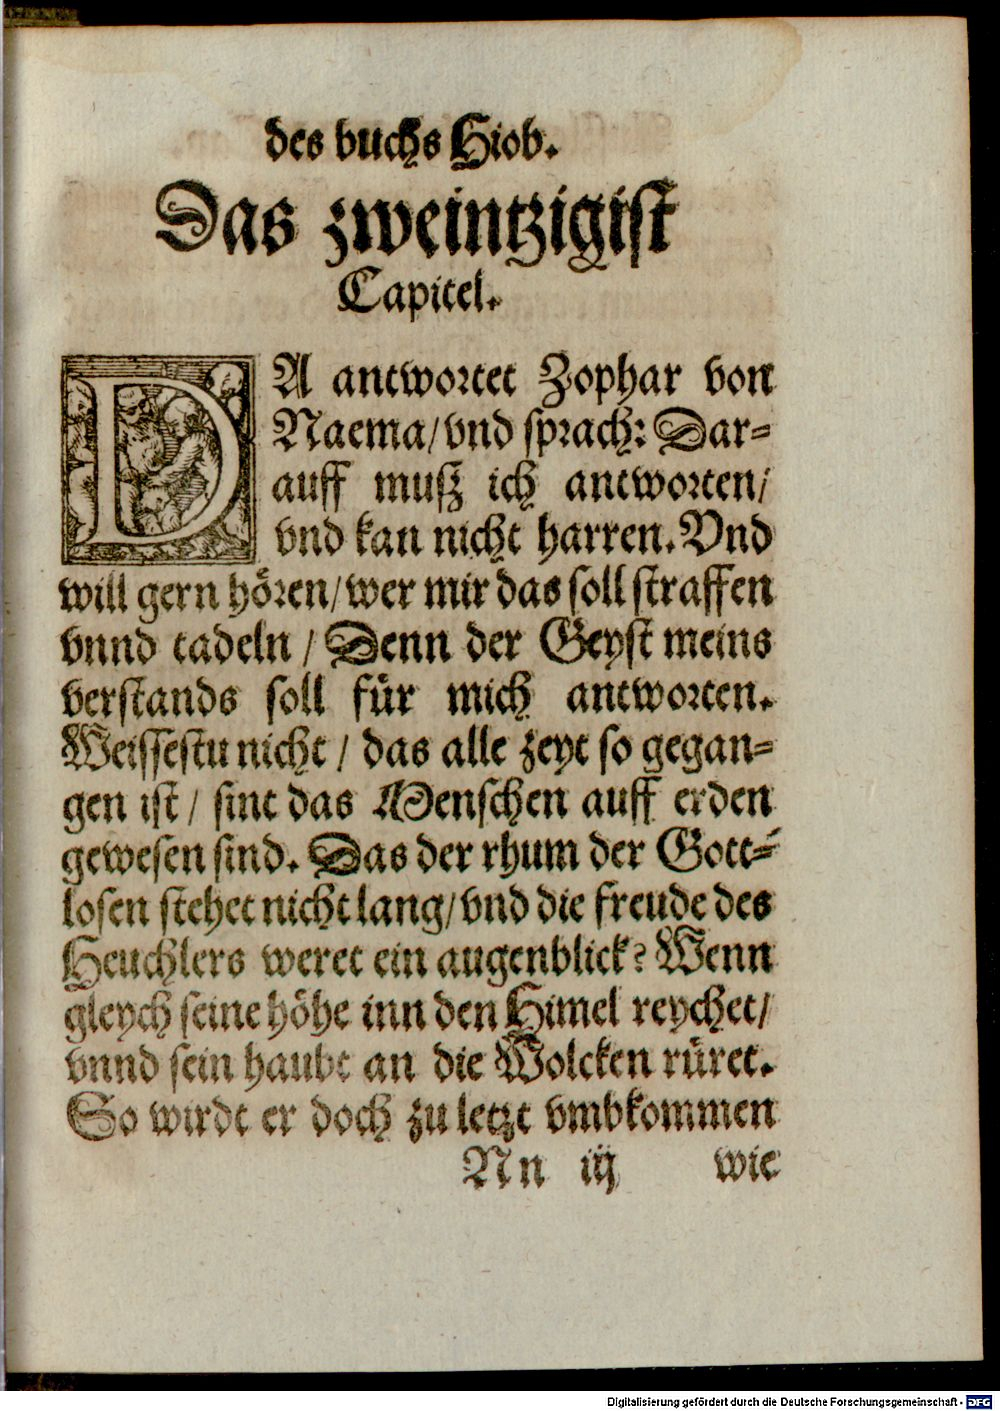 des buchs Hiob.
Das zweintzigist
Capitel.
DA antwortet Zophar von
Naema/vnd sprach: Dar-
auff muß ich antworten/
vnd kan nicht harren. Vnd
will gern hören/wer mir das soll straffen
vnnd tadeln / Denn der Geyst meins
verstands soll für mich antworten.
Weissestu nicht / das alle zeyt so gegan-
gen ist / sint das Menschen auff erden
gewesen sind. Das der rhum der Gott-
losen stehet nicht lang/vnd die freude des
Heuchlers weret ein augenblick? Wenn
gleych seine höhe inn den Himel reychet/
vnnd sein haubt an die Wolcken rüret.
So wirdt er doch zu letzt vmbkommen
Nn iij wie
Digitalisierung gefördert durch die Deutsche Forschungsgemeinschaft - DFG